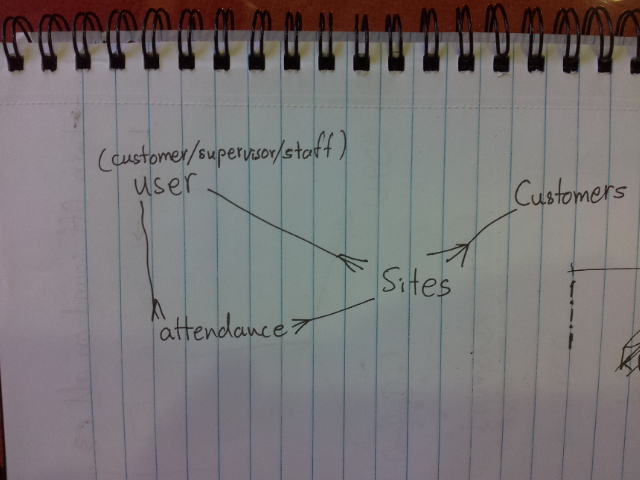 (customer/supervisor/staff)
user
Customers
Sites
attendance